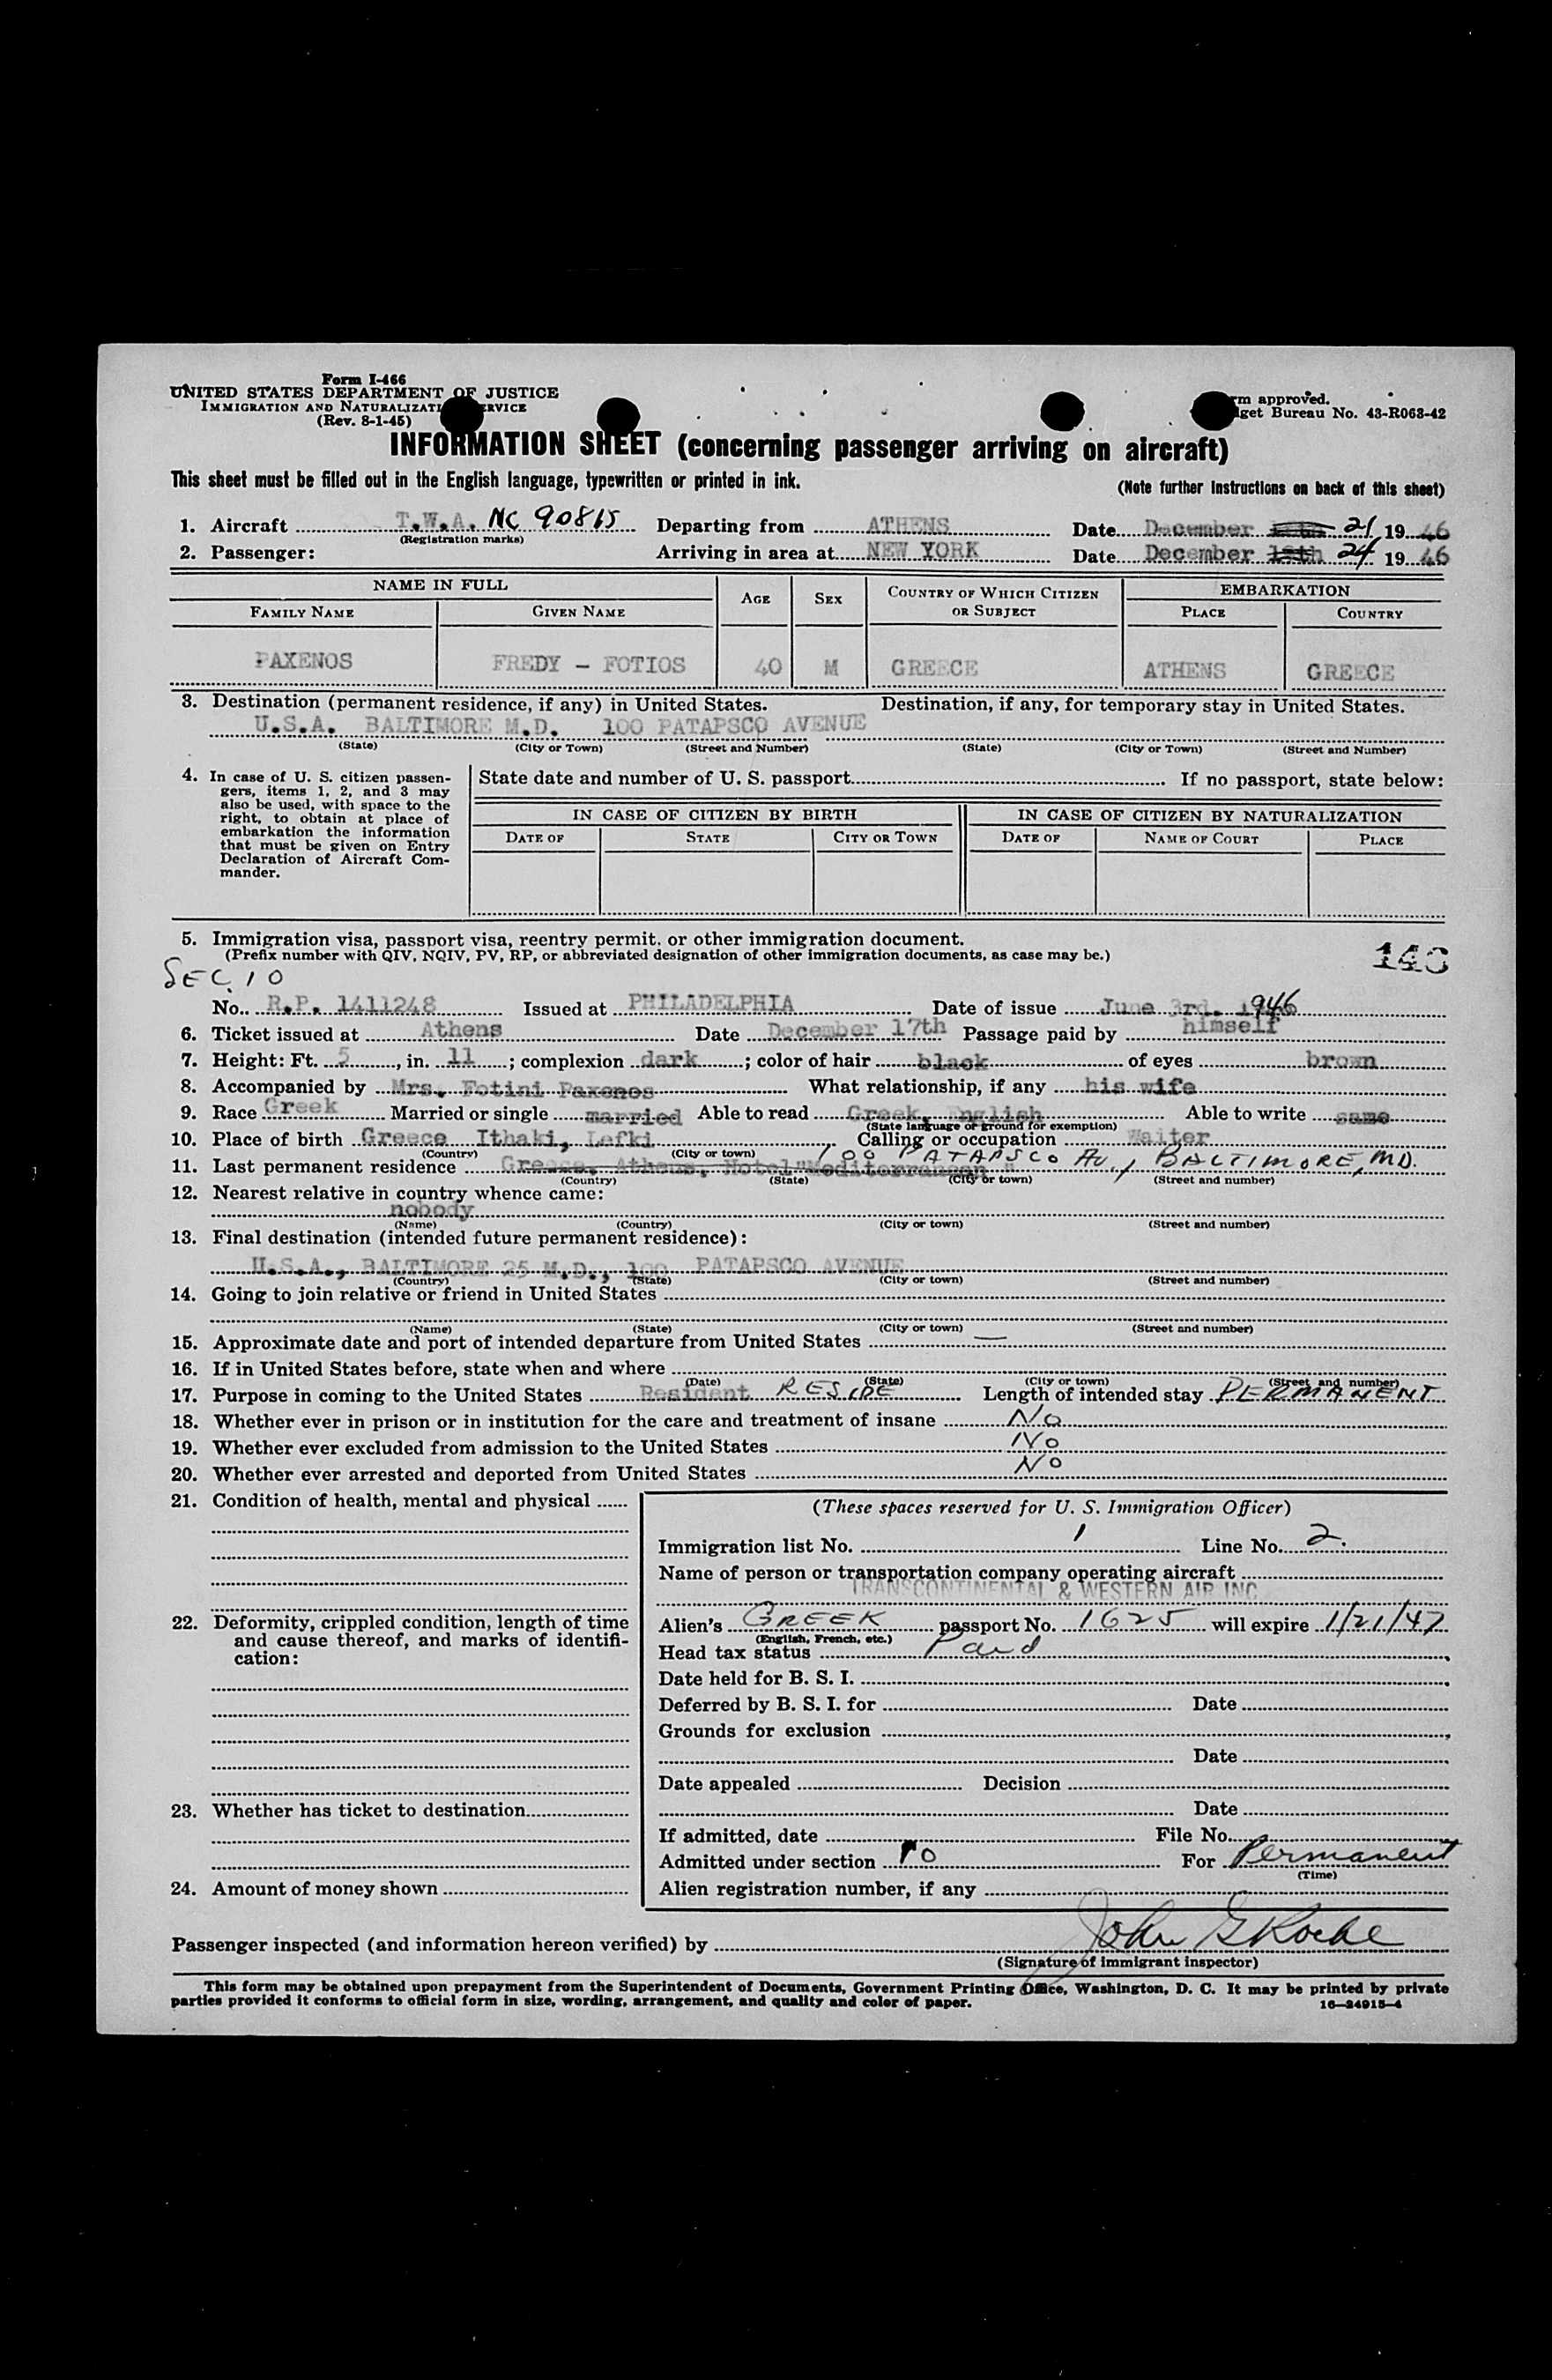 Form I-466
UNITED STATES DEPARTMENT OF JUSTICE
IMMIGRATION AND NATURALIZATI ERVICE
(Rev. 8-1-45)
rm approved.
get Bureau No. 43-R063-42
INFORMATION SHEET (concerning passenger arriving on aircraft)
This sheet must be filled out in the English language, typewritten or printed in ink.
(Note further instructions on back of this sheet)
1. Aircraft T.W.A. NC 90815 Departing from ATHENS Date December 21 1946
(Registration marks)
2. Passenger: Arriving in area at NEW YORK Date December 18th 24 1946
NAME IN FULL
FAMILY NAME GIVEN NAME AGE SEX COUNTRY OF WHICH CITIZEN OR SUBJECT EMBARKATION PLACE COUNTRY
PAXENOS FREDY - FOTIOS 40 M GREECE ATHENS GREECE
3. Destination (permanent residence, if any) in United States. Destination, if any, for temporary stay in United States.
U.S.A. BALTIMORE M.D. 100 PATAPSCO AVENUE
(State) (City or Town) (Street and Number) (State) (City or Town) (Street and Number)
4. In case of U. S. citizen passen-
gers, items 1, 2, and 3 may
also be used, with space to the
right, to obtain at place of
embarkation the information
that must be given on Entry
Declaration of Aircraft Com-
mander.
State date and number of U. S. passport If no passport, state below:
IN CASE OF CITIZEN BY BIRTH IN CASE OF CITIZEN BY NATURALIZATION
DATE OF STATE CITY OR TOWN DATE OF NAME OF COURT PLACE
5. Immigration visa, passport visa, reentry permit, or other immigration document.
(Prefix number with QIV, NQIV, PV, RP, or abbreviated designation of other immigration documents, as case may be.)
SEC. 10
No. R.P. 1411248 Issued at PHILADELPHIA Date of issue June 3rd. 1946
6. Ticket issued at Athens Date December 17th Passage paid by himself
7. Height: Ft. 5, in. 11; complexion dark; color of hair black of eyes brown
8. Accompanied by Mrs. Fotini Paxenos What relationship, if any his wife
9. Race Greek Married or single married Able to read Greek, English Able to write same
(State language or ground for exemption)
10. Place of birth Greece Ithaki, Lefki Calling or occupation Waiter
(Country) (City or town)
100 PATAPSCO AV., BALTIMORE, MD.
11. Last permanent residence Greece, Athens, Hotel "Mediterranean"
(Country) (State) (City or town) (Street and number)
12. Nearest relative in country whence came:
nobody
(Name) (Country) (City or town) (Street and number)
13. Final destination (intended future permanent residence):
U.S.A., BALTIMORE 25 M.D., 100 PATAPSCO AVENUE
(Country) (State) (City or town) (Street and number)
14. Going to join relative or friend in United States
(Name) (State) (City or town) (Street and number)
15. Approximate date and port of intended departure from United States —
16. If in United States before, state when and where
(Date) (State) (City or town) (Street and number)
17. Purpose in coming to the United States Resident RESIDE Length of intended stay PERMANENT
18. Whether ever in prison or in institution for the care and treatment of insane No
19. Whether ever excluded from admission to the United States No
20. Whether ever arrested and deported from United States No
21. Condition of health, mental and physical
22. Deformity, crippled condition, length of time
and cause thereof, and marks of identifi-
cation:
23. Whether has ticket to destination
24. Amount of money shown
(These spaces reserved for U. S. Immigration Officer)
Immigration list No. 1 Line No. 2.
Name of person or transportation company operating aircraft
TRANSCONTINENTAL & WESTERN AIR INC
Alien's GREEK passport No. 1625 will expire 1/21/47
(English, French, etc.)
Head tax status Paid
Date held for B. S. I.
Deferred by B. S. I. for Date
Grounds for exclusion
Date
Date appealed Decision
Date
If admitted, date File No.
Admitted under section 10 For Permanent
(Time)
Alien registration number, if any
Passenger inspected (and information hereon verified) by
(Signature of immigrant inspector)
This form may be obtained upon prepayment from the Superintendent of Documents, Government Printing Office, Washington, D. C. It may be printed by private
parties provided it conforms to official form in size, wording, arrangement, and quality and color of paper.
16—24915-4